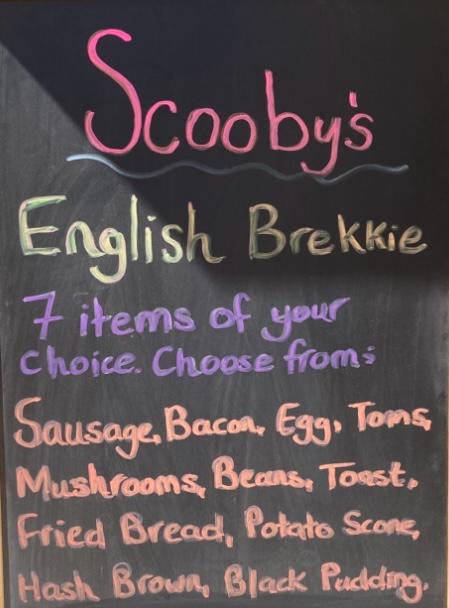 Scooby's
English Brekkie
7 items of your
choice. Choose from:
Sausage, Bacon, Egg, Toms,
Mushrooms, Beans, Toast,
Fried Bread, Potato Scone,
Hash Brown, Black Pudding.